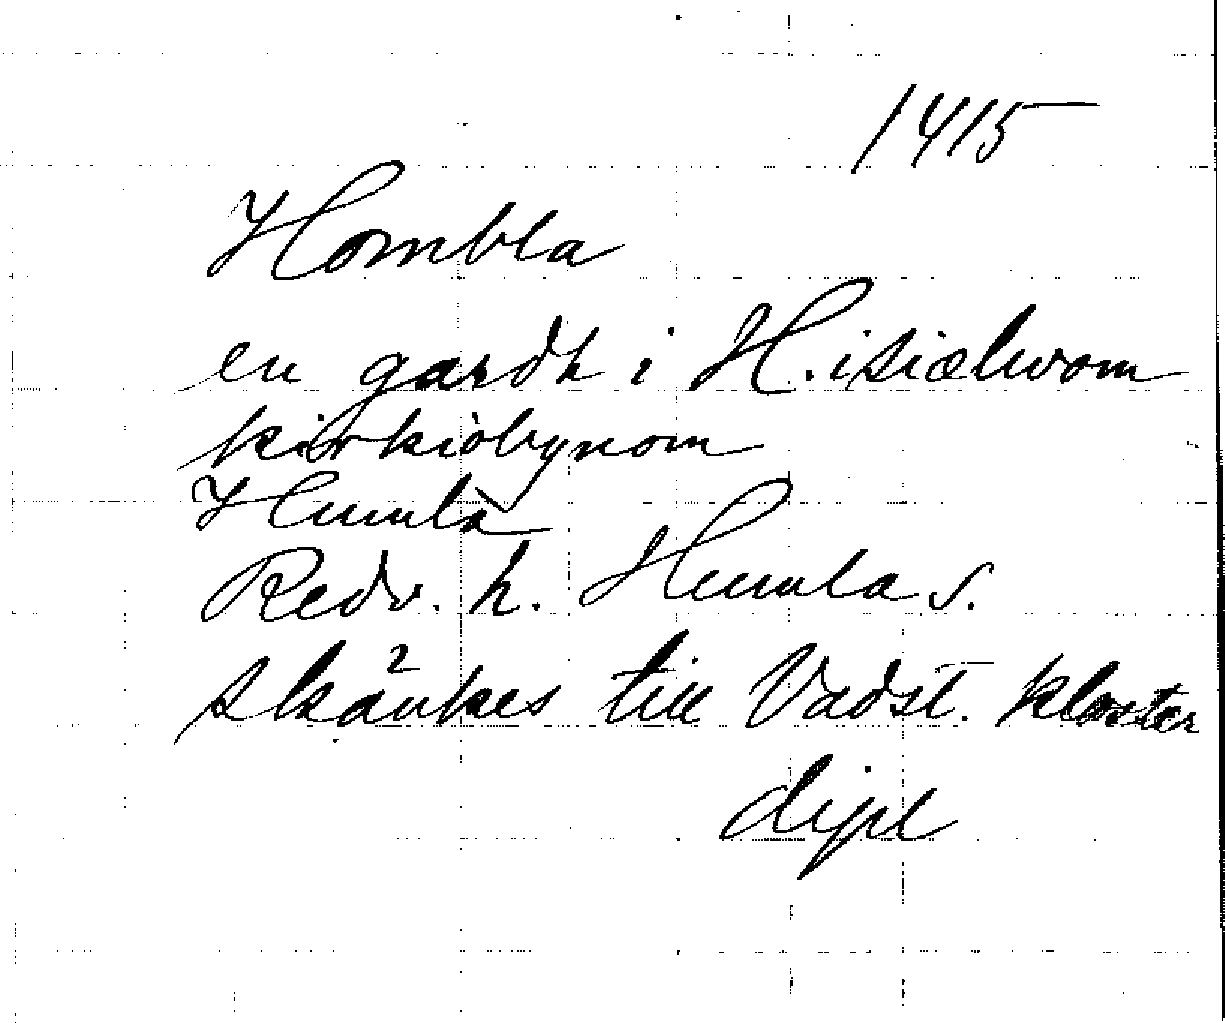 1415
Hombla
en gardh i H. i siælwom
kirkiobynom
Humla
Redv. h. Humla s.
skänkes till Vadst. kloster
dipl